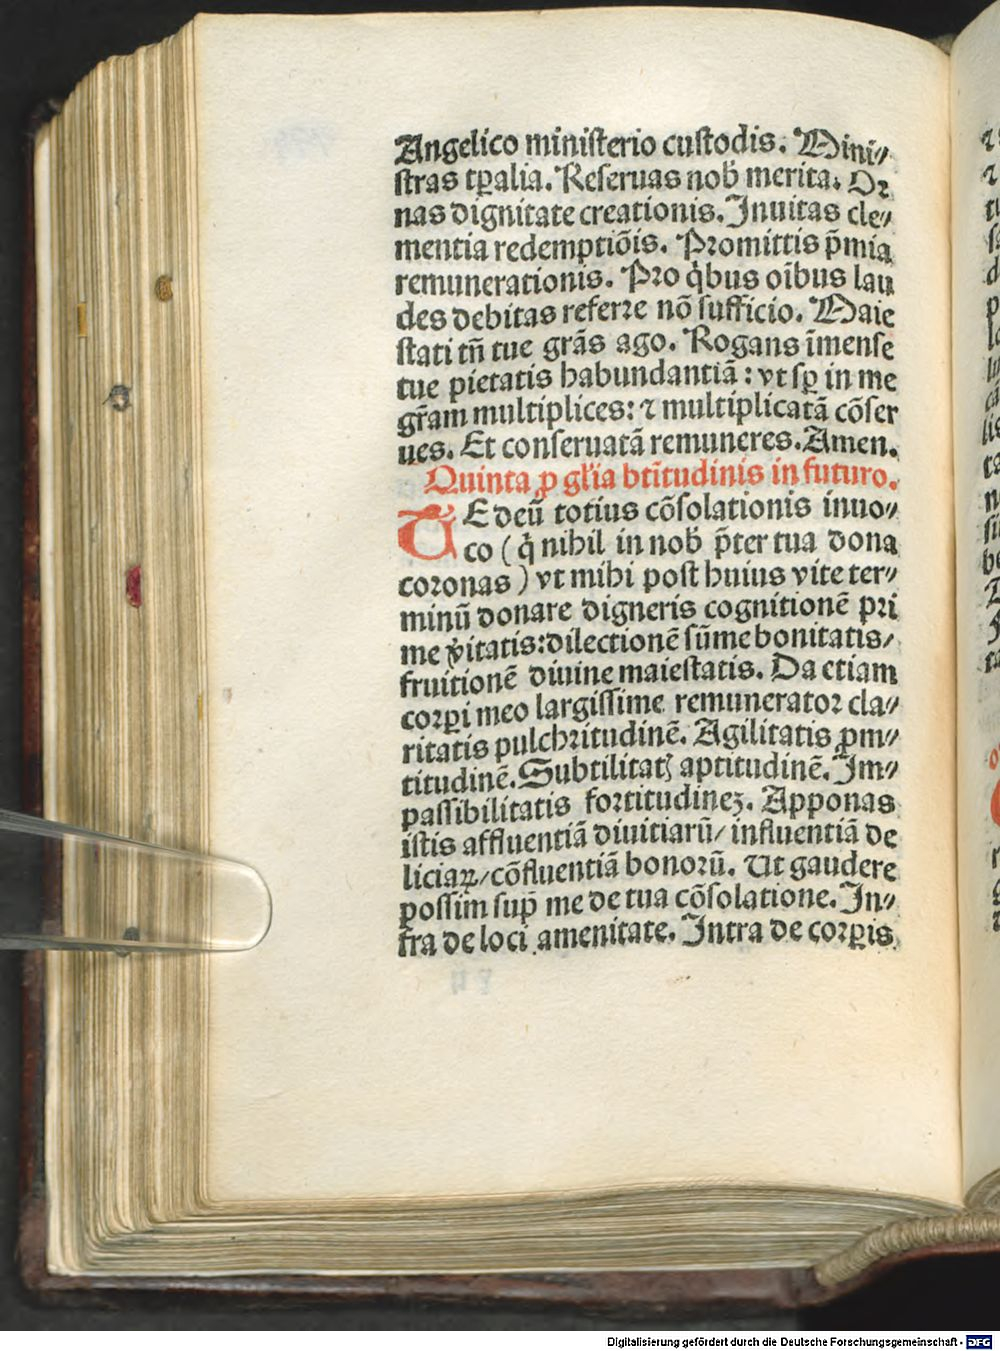 Angelico ministerio custodis. Mini⸗
stras tꝑalia. Reseruas nob̃ merita. Or
nas dignitate creationis. Inuitas cle⸗
mentia redemptiõis. Promittis p̃mia
remunerationis. Pro q̇bus oĩbus lau
des debitas referre nõ sufficio. Maie
stati tñ tue grãs ago. Rogans ĩmense
tue pietatis habundantiã: vt sꝑ in me
gr̃am multiplices: ⁊ multiplicatã cõser
ues. Et conseruatã remuneres. Amen.
Quinta ꝓ gl̃ia bt̃itudinis in futuro.
TE deũ totius cõsolationis inuo⸗
co (q̇ nihil in nob̃ p̃ter tua dona
coronas) vt mihi post huius vite ter⸗
minũ donare digneris cognitionẽ pri
me ṽitatis: dilectionẽ sũme bonitatis/
fruitionẽ diuine maiestatis. Da etiam
corꝑi meo largissime remunerator cla⸗
ritatis pulchritudinẽ. Agilitatis ꝓm⸗
titudinẽ. Subtilitatꝭ aptitudinẽ. Im⸗
passibilitatis fortitudineꝫ. Apponas
istis affluentiã diuitiarũ/ influentiã de
liciaꝝ/ cõfluentiã bonorũ. Ut gaudere
possim suꝑ me de tua cõsolatione. In⸗
fra de loci amenitate. Intra de corꝑis
Digitalisierung gefördert durch die Deutsche Forschungsgemeinschaft - DFG